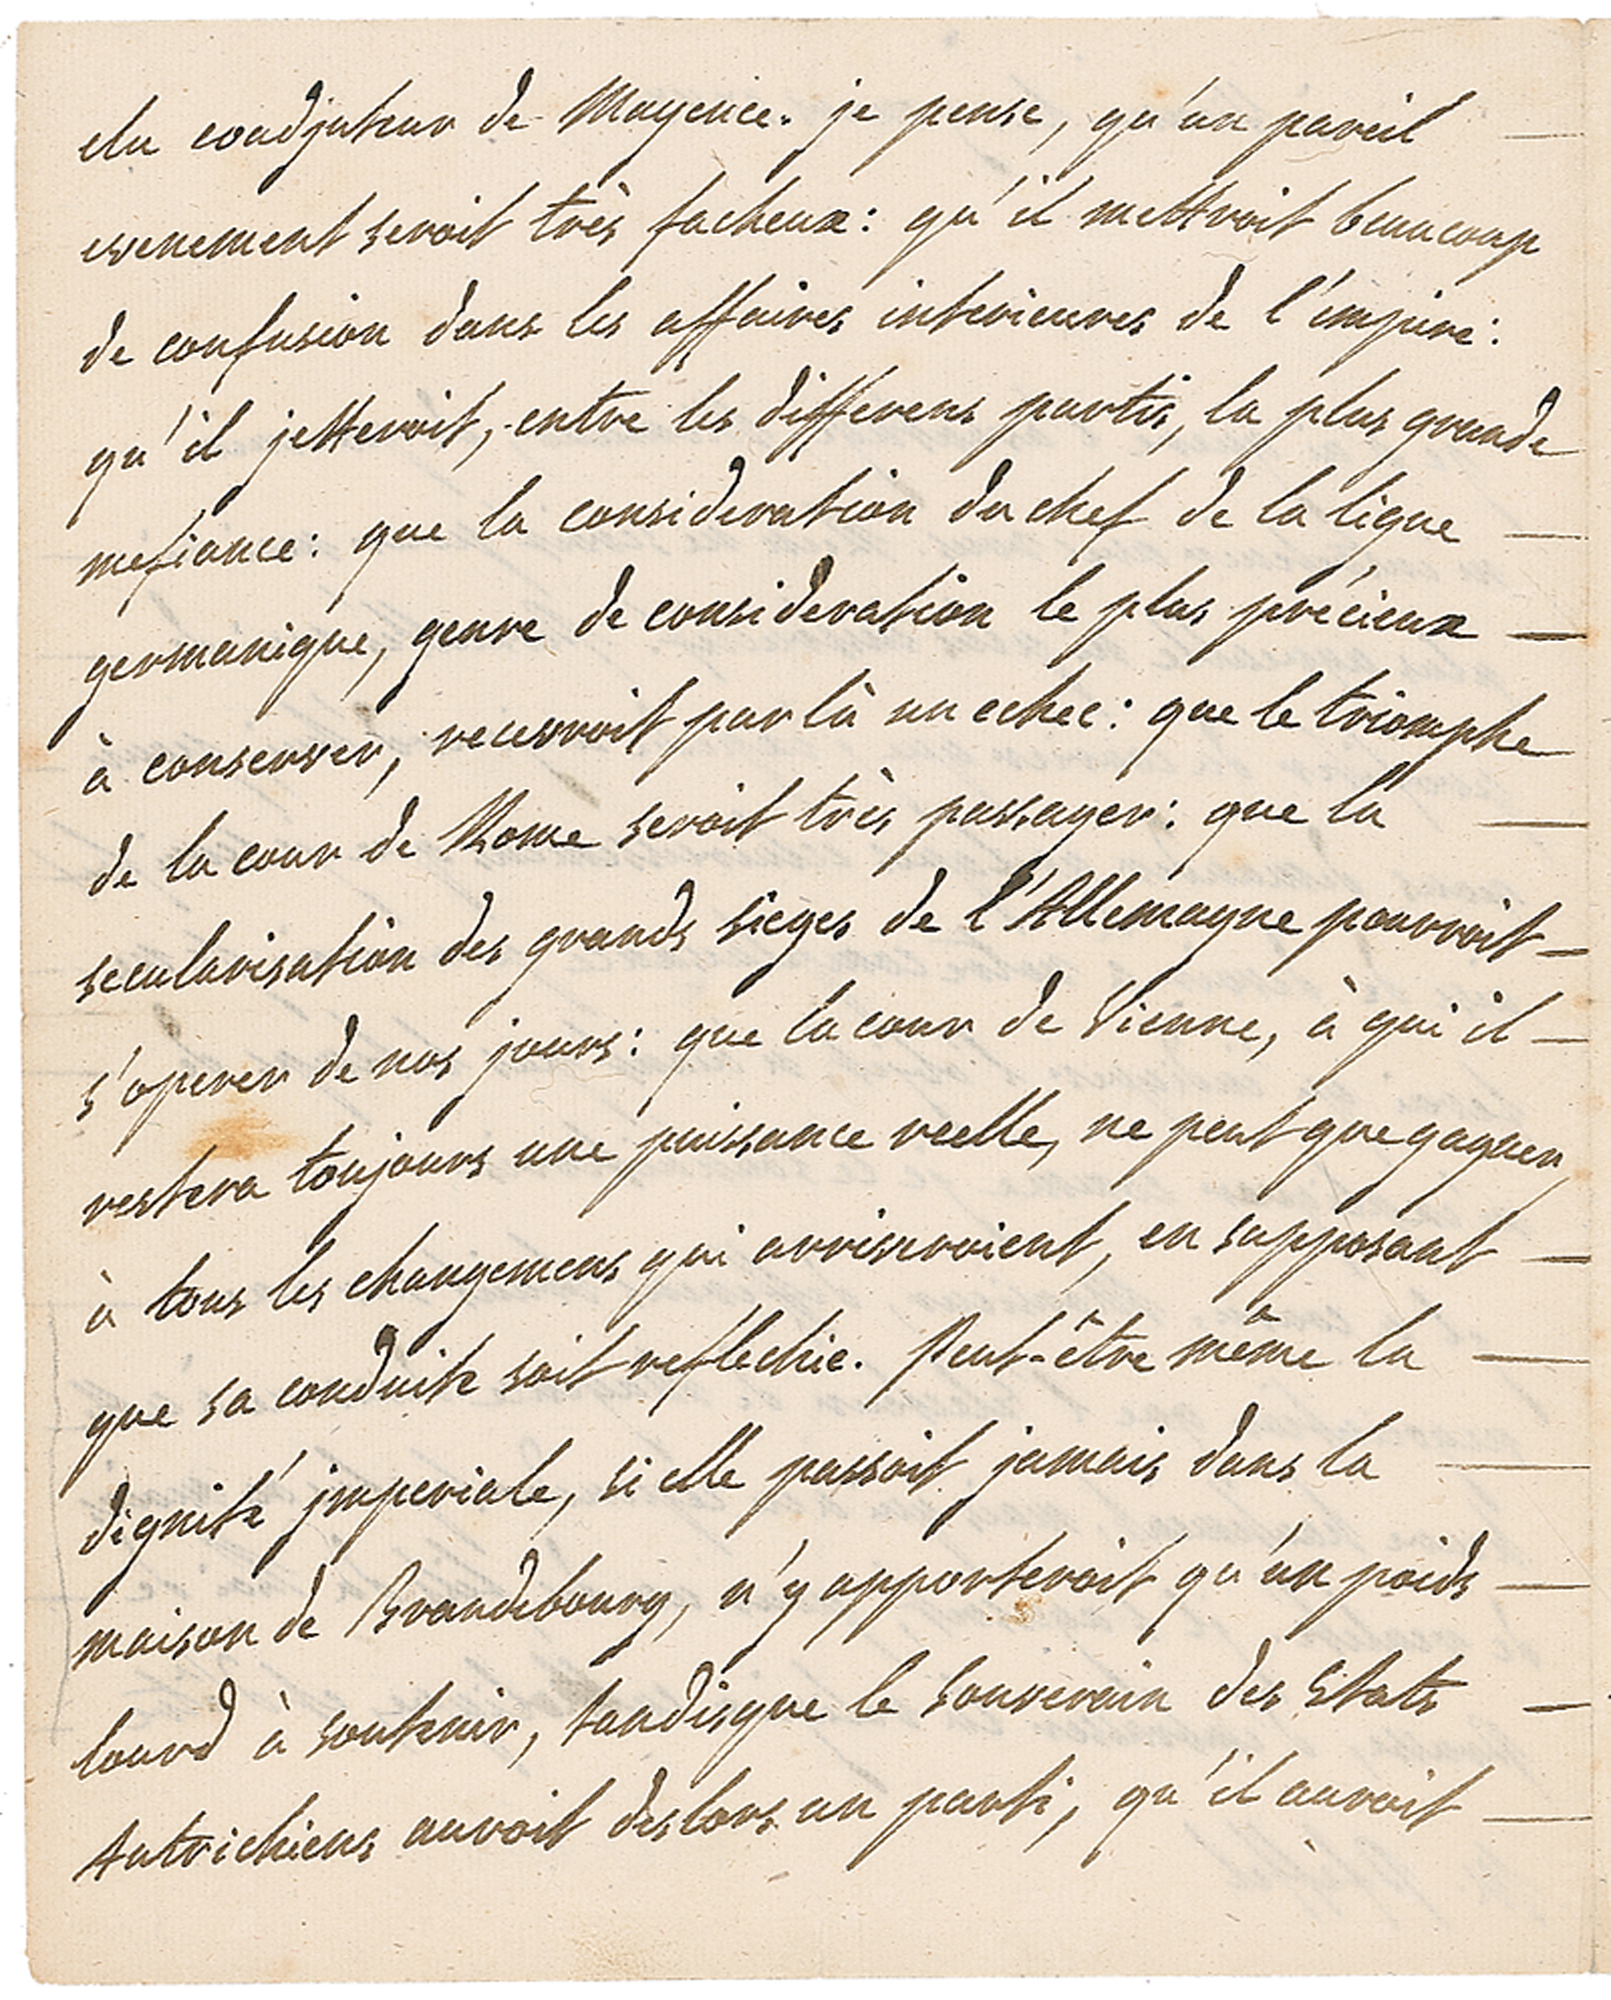 du coadjuteur de Mayence. je pense, qu'un pareil —
evenement seroit très facheux: qu'il mettroit beaucoup
de confusion dans les affaires interieures de l'empire:
qu'il jetteroit, entre les differens partis, la plus grande
mefiance: que la consideration du chef de la ligue —
germanique, genre de consideration le plus précieux —
à conserver, recevroit par là un echec: que le triomphe
de la cour de Rome seroit très passager: que la —
secularisation des grands sieges de l'Allemagne pourroit —
s'operer de nos jours: que la cour de Vienne, à qui il —
restera toujours une puissance reelle, ne peut que gagner
à tous les changemens qui arriveroient, en supposant —
que sa conduite soit reflechie. Peut-être même la —
dignité jmperiale, si elle passoit jamais dans la —
maison de Brandebourg, n'y apporteroit qu'un poids —
lourd à soutenir, tandisque le souverain des Etats —
Autrichiens auroit deslors un parti, qu'il auroit —